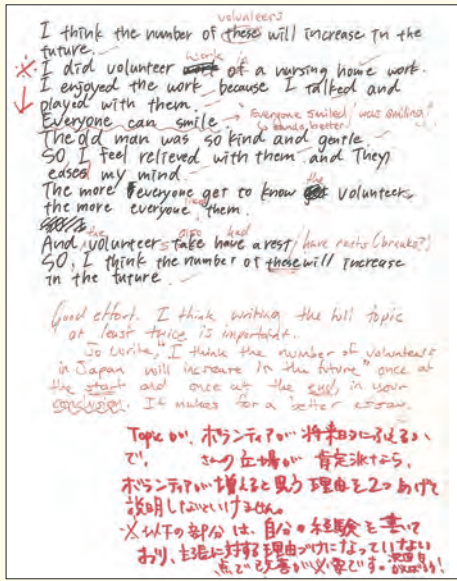 volunteers
I think the number of these will increase in the
future.
work
※ I did volunteer of a nursing home work.
I enjoyed the work because I talked and
played with them.
Everyone can smile "Everyone smiled / was smiling"
better
The old man was so kind and gentle
SO, I feel relieved with them and They
eased my mind.
the
The more everyone get to know volunteers
liked
the more everyone them.
the also had
And, volunteers take have a rest / have rests (breaks?)
SO, I think the number of these will increase
in the future.
Good effort. I think writing the full topic
at least twice is important.
So write, "I think the number of volunteers
in Japan will increase in the future" once at
the start and once at the end, in your
conclusion. It makes for a better essay.
Topicが、ボランティアが将来的にふえるか
で、 さんの立場が肯定派なら、
ボランティアが増えると思う理由を2つあげて
説明しないといけません。
※以下の部分は、自分の経験を書いて
おり、主張に対する理由づけになっていない
点で改善が必要です。